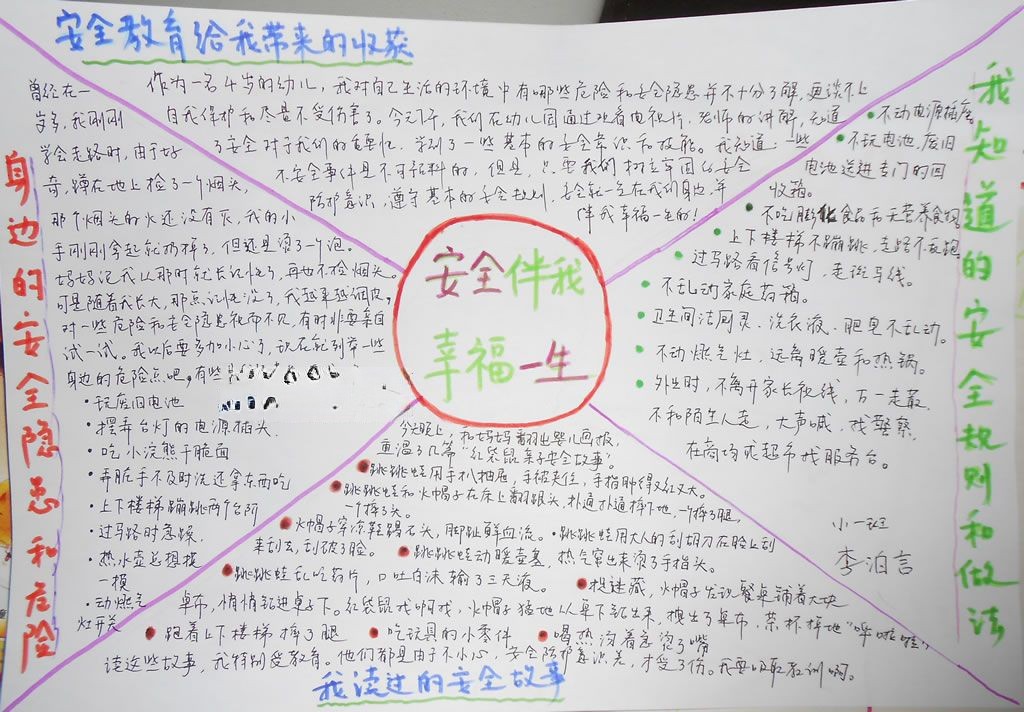 安全教育给我带来的收获
作为一名4岁的幼儿，我对自己生活的环境中有哪些危险和安全隐患并不十分了解，更谈不上
自我保护和尽量不受伤害了。今天下午，我们在幼儿园通过观看电视片，老师的讲解，知道
了安全对于我们的重要性，学到了一些基本的安全常识和技能。我知道：一些
不安全事件是不可预料的，但是，只要我们树立牢固的安全
防护意识，遵守基本的安全规则，安全就一定在我们身边，并
伴我幸福一生的！
身边的安全隐患和危险
曾经在一
岁多，我刚刚
学会走路时，由于好
奇，蹲在地上捡了一个烟头，
那个烟头的火还没有灭，我的小
手刚刚拿起就扔掉了，但还是烫了一个泡。
妈妈说我从那时就长记性了，再也不捡烟头。
可是随着我长大，那点记性没了，我越来越调皮，
对一些危险和安全隐患视而不见，有时非要亲自
试一试。我以后要多加小心了，现在就列举一些
身边的危险点吧，有些
·玩废旧电池
·摆弄台灯的电源插头.
·吃小浣熊干脆面
·弄脏手不及时洗还拿东西吃
·上下楼梯蹦跳两个台阶
·过马路时急躁.
·热水壶总想摸
一摸
·动燃气
灶开关
安全伴我
幸福一生
我知道的安全规则和做法
·不动电源插座.
·不玩电池.废旧
电池送进专门的回
收箱。
·不吃膨化食品和无营养食物
·上下楼梯不蹦跳，走路不乱跑
·过马路看信号灯，走斑马线。
·不乱动家庭药箱。
·卫生间洁厕灵、洗衣液、肥皂不乱动。
·不动燃气灶，远离暖壶和热锅。
·外出时，不离开家长视线，万一走散.
不和陌生人走，大声喊，找警察.
在商场或超市找服务台。
小一班
李泊言
今天晚上，和妈妈翻出婴儿画报，
重温了几篇“红袋鼠亲子安全故事”。
·跳跳蛙用手扒抽屉，手被夹住，手指肿得又红又大。
·跳跳蛙和火帽子在床上翻跟头，扑通扑通摔下地，一个摔了腿，
一个摔了头。
·火帽子穿凉鞋踢石头，脚趾鲜血流。·跳跳蛙用大人的刮胡刀在脸上刮
来刮去，刮破了脸。
·跳跳蛙动暖壶塞，热气窜出来烫了手指头。
·跳跳蛙乱吃药片，口吐白沫输了三天液。
·捉迷藏，火帽子发现餐桌铺着大块
桌布，悄悄钻进桌子下。红袋鼠找啊找，火帽子猛地从桌下钻出来，拽出了桌布，茶杯摔地“哗啦啦”
·跑着上下楼梯摔了腿
·吃玩具的小零件
·喝热汤着急烫了嘴
读这些故事，我特别受教育。他们都是由于不小心，安全防护意识差，才受了伤。我要吸取教训啊。
我读过的安全故事